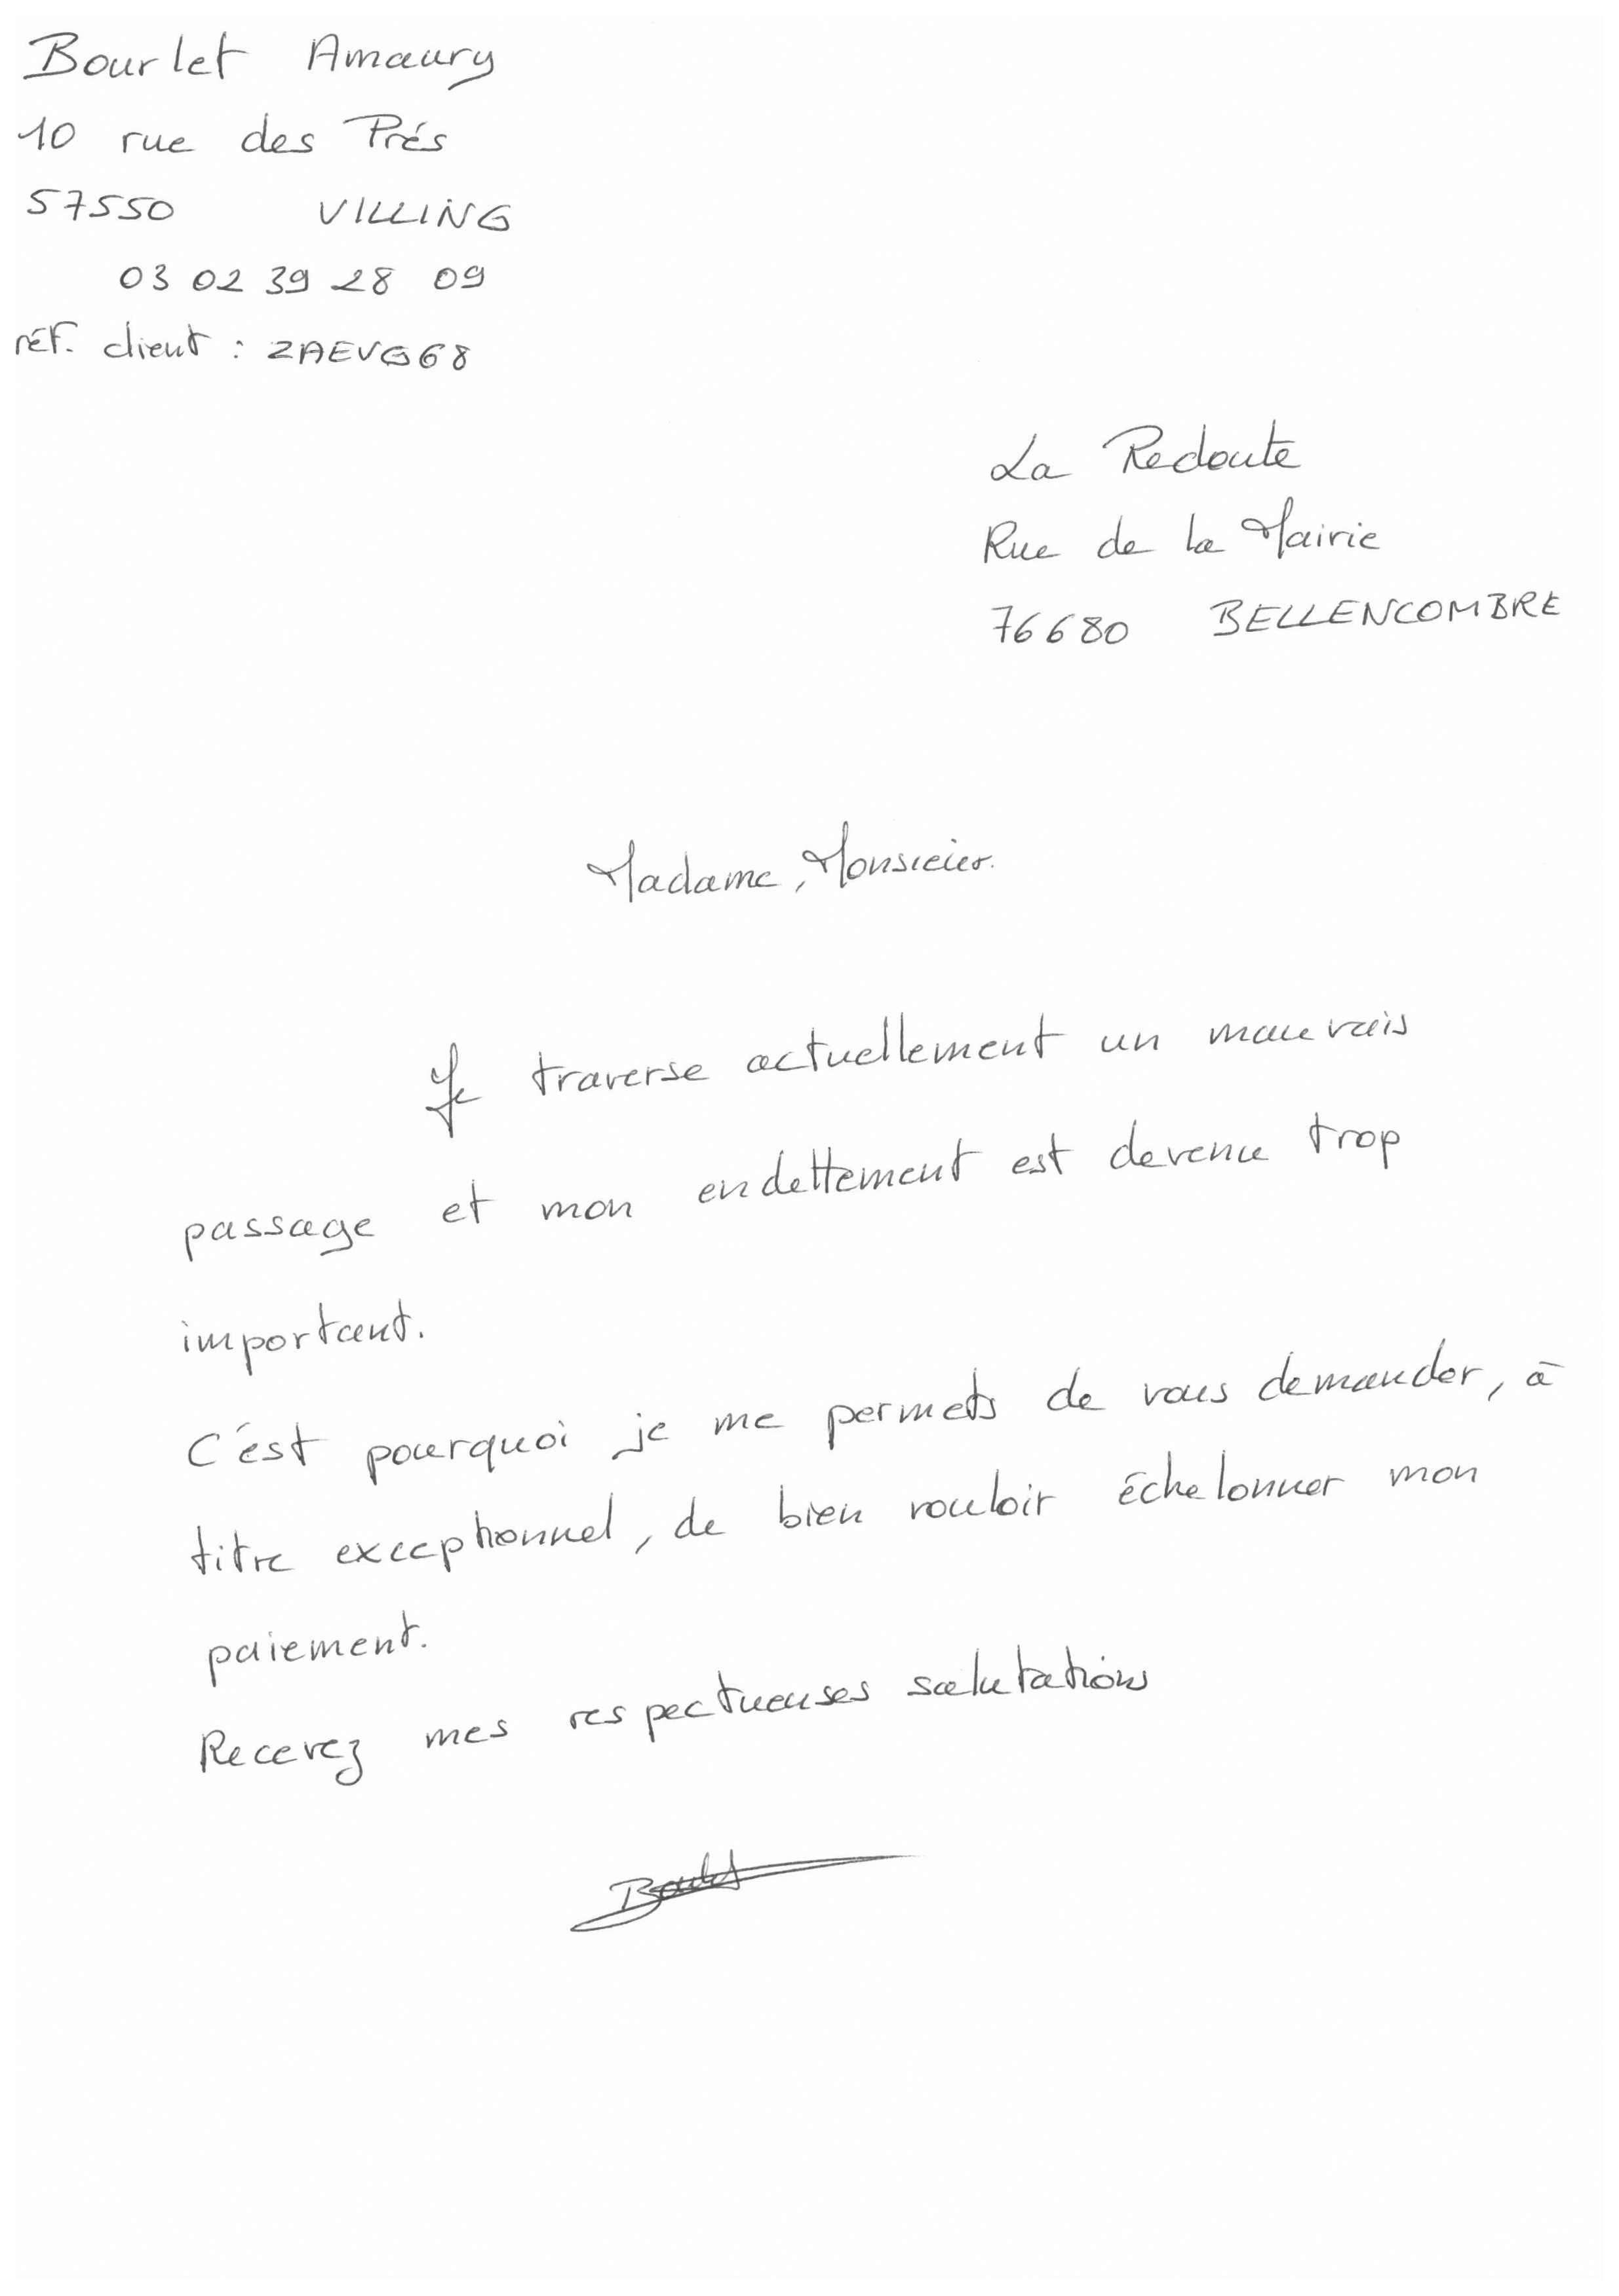 Bourlet Amaury
10 rue des Prés
57550 VILLING
03 02 39 28 09
réf. client : ZAEVG68
La Redoute
Rue de la Mairie
76680 BELLENCOMBRE
Madame, Monsieur.
Je traverse actuellement un mauvais
passage et mon endettement est devenu trop
important.
C'est pourquoi je me permets de vous demander, à
titre exceptionnel, de bien vouloir échelonner mon
paiement.
Recevez mes respectueuses salutations